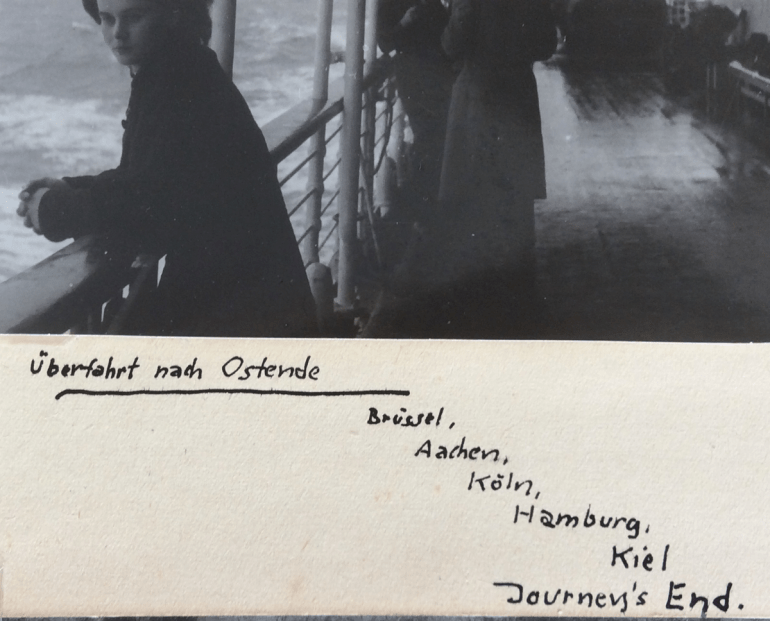 Überfahrt nach Ostende
Brüssel,
Aachen,
Köln,
Hamburg,
Kiel
Journey's End.